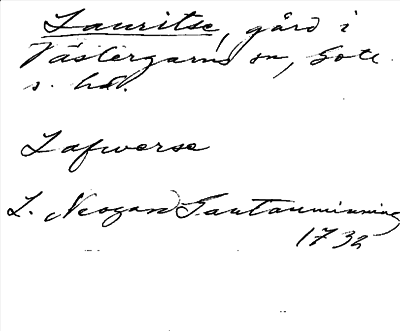 Lauritse, gård i
Västergarns sn, Gotl.
s. hd.
Lafwerse
L. Neogard Gautauminning
1732